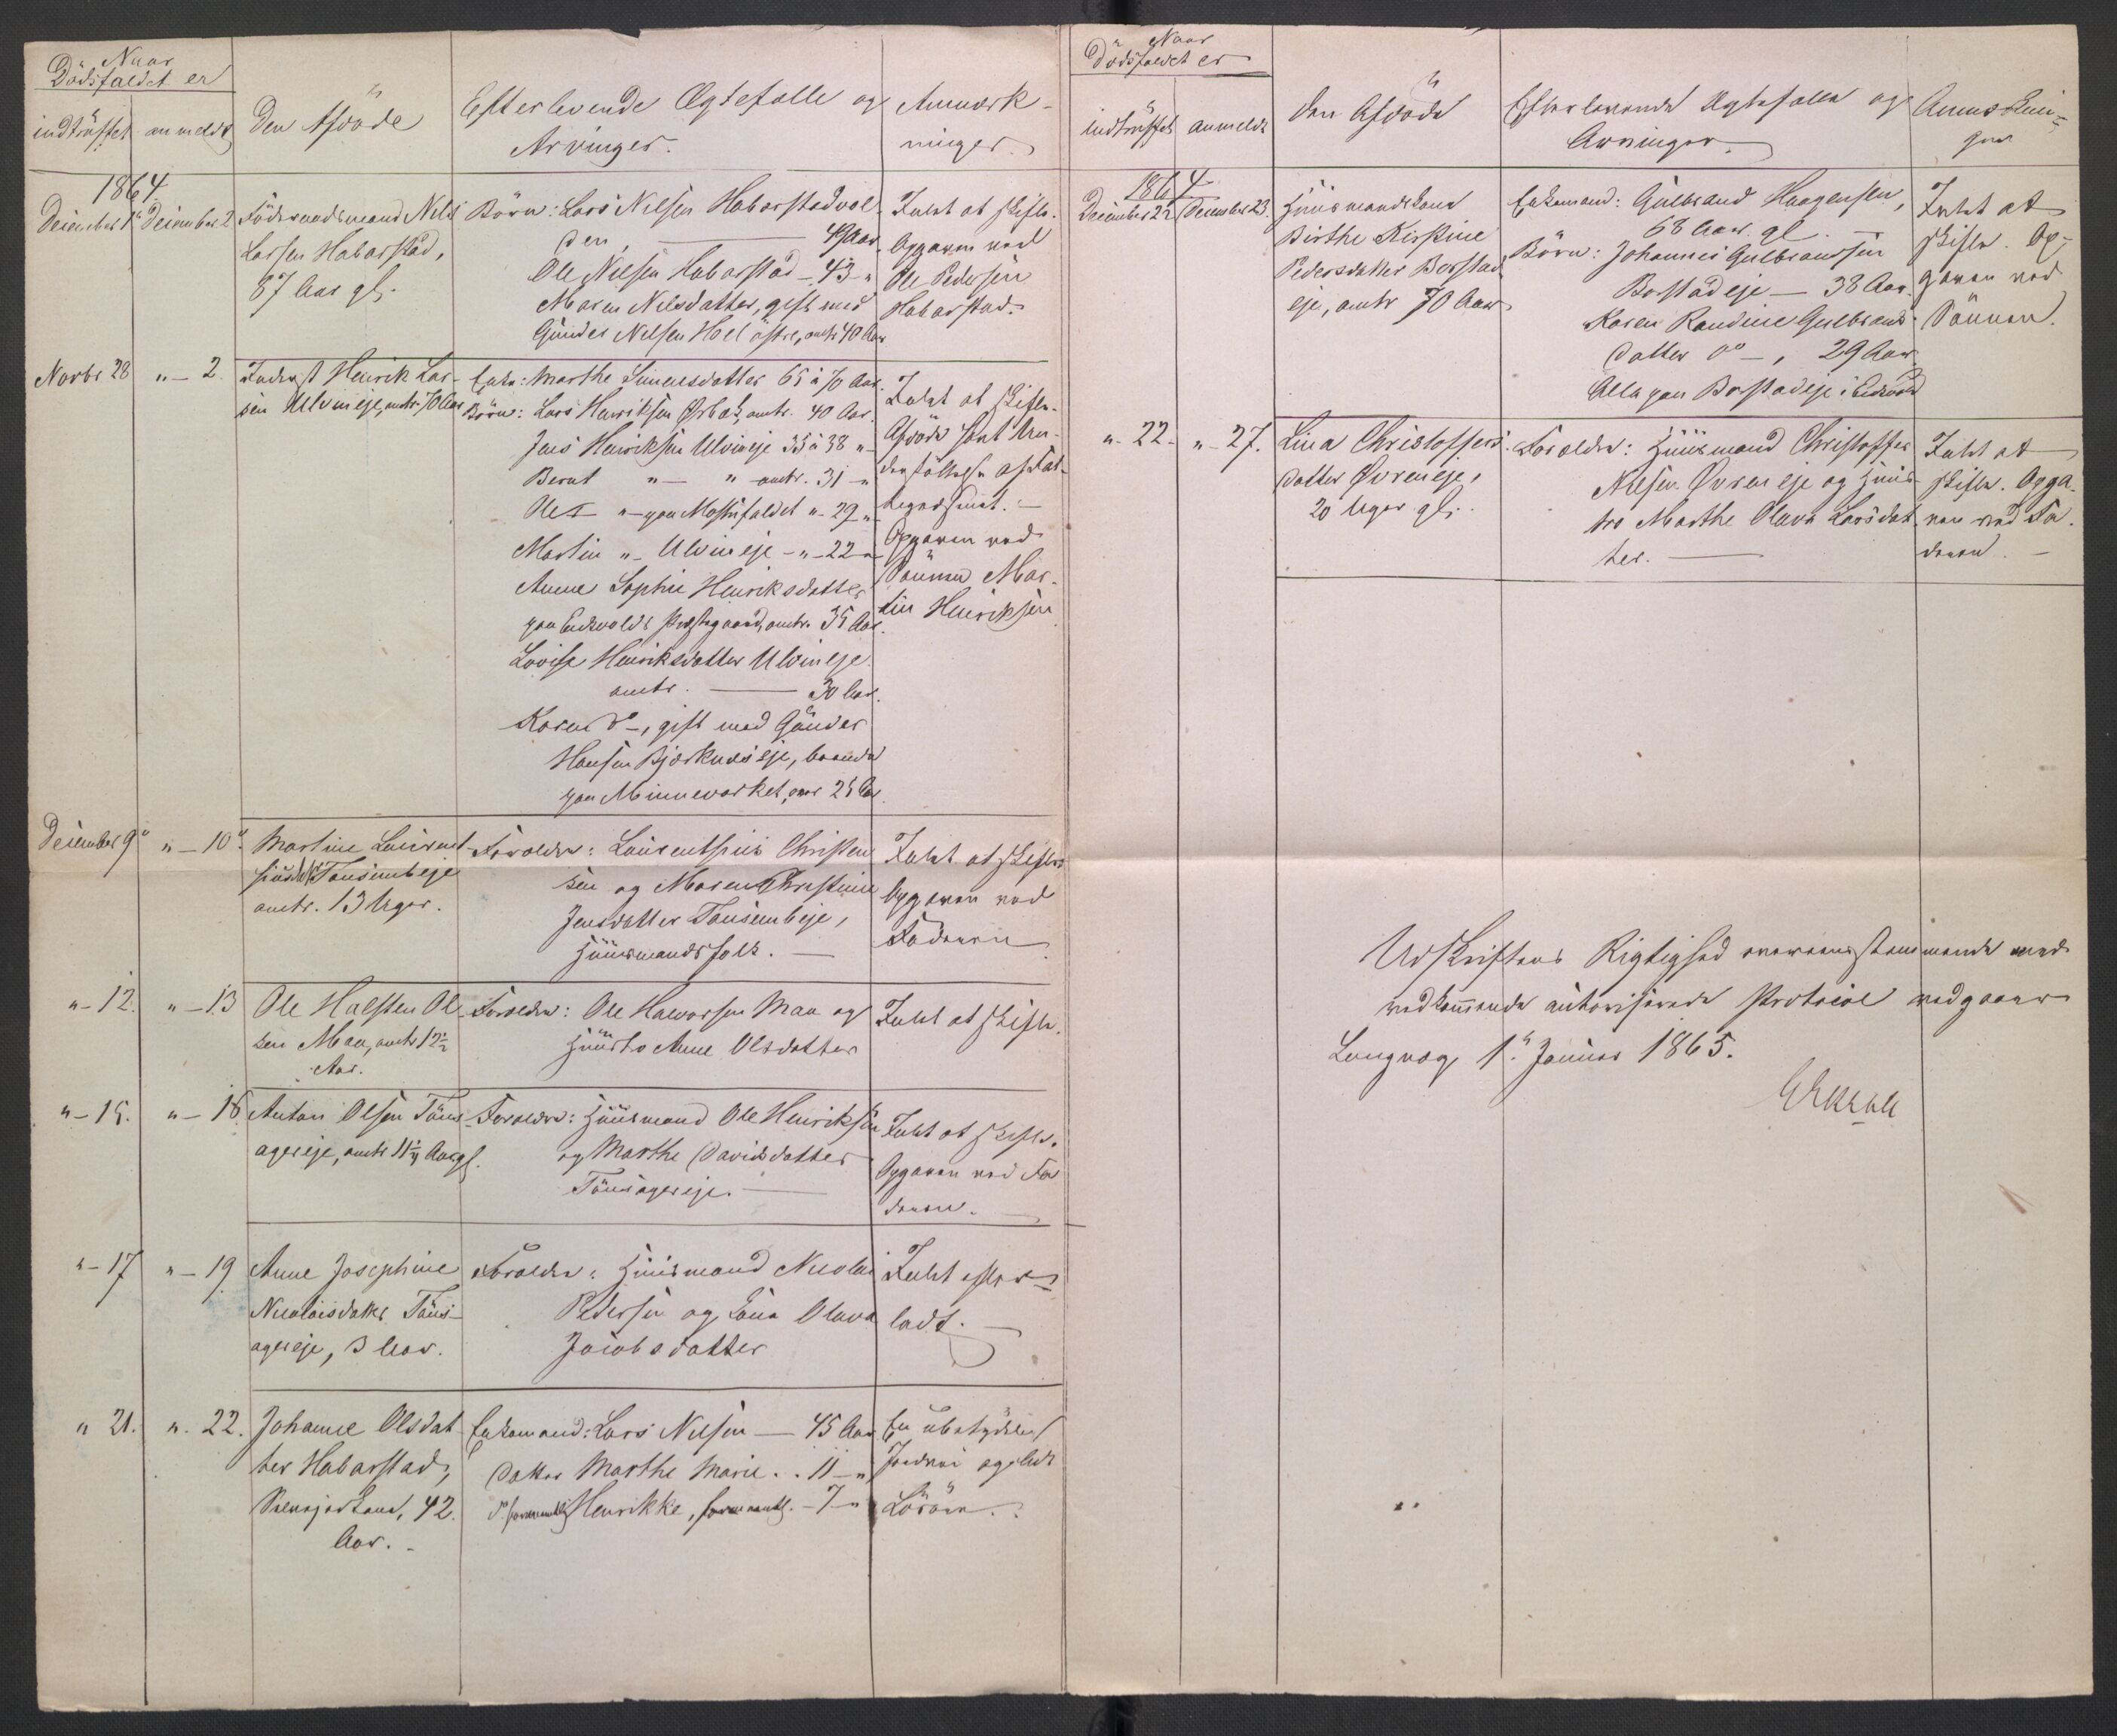 Naar
Dödsfaldet er
indtruffet anmeldt
Den Afdöde
Efterlevende Ægtefælle og
Arvinger.
Anmærk-
ninger.
1864.
December 1ste December 2
Föderaadsmand Nils
Larsen Habarstad,
87 Aar gl.
Börn: Lars Nilsen Habarstadval-
den, 49 Aar
Ole Nilsen Habarstad - 43 "
Maren Nilsdatter, gift med
Gunder Nilsen Hol östre, omtr 40 Aar
Intet at skifte.
Opgaven ved
Ole Pedersen
Habarstad.
Novbr 28 " - 2.
Inderst Henrik Lar-
sen Ulvineje, omtr. 70 Aar
Enke: Marthe Simensdatter 65 à 70 Aar.
Börn: Lars Henriksen Ørbak, omtr. 40 Aar.
Jens Henriksen Ulvineje 35 à 38 "
Bernt " - " omtr. 31 - "
Ole " - paa Mostufaldet " 29 "
Martin " - Ulvineje - " - 22 "
Anne Sophie Henriksdatter
paa Eidsvolds Præstegaard, omtr. 35 Aar.
Lovise Henriksdatter Ulvineje
omtr. 30 Aar.
Karen do -, gift med Gunder
Hansen Bjørknæseje, boende
paa Minneværket, omtr 25 Aar.
Intet at skifte.
Afdöde havt Un-
derstöttelse af Fat-
tigvæsenet. -
Opgaven ved
Sönnen Mar-
tin Henriksen
December 9de " - 10de
Martine Laurent-
siusdtr Tonsimbeje
omtr. 13 Uger.
Forældre: Laurentsius Christen
sen og Maren Christine
Jensdatter Tonsimbeje,
Huusmandsfolk. -
Intet at skifte.
Opgaven ved
Faderen
" - 12. " - 13
Ole Halsten Ol-
sen Mau, omtr 12½
Aar.
Forældre: Ole Halvorsen Mau og
Hustro Anne Olsdatter
Intet at skifte.
" - 15. " - 16.
Anton Olsen Töns-
agereje, omtr 11½ Aar gl.
Forældre: Huusmand Ole Henriksen
og Marthe Davidsdatter
Tönsagereje. -
Intet at skifte.
Opgaven ved Fa-
deren.
" - 17 " - 19.
Anne Josephine
Nicolaisdatter Töns-
agereje, 3 Aar.
Forældre: Huusmand Nicolai
Pedersen og Lina Olava
Jacobsdatter
Intet efter-
ladt.
" 21. " 22.
Johanne Olsdat-
ter Habarstad,
Selvejerkone, 42.
Aar. -
Enkemand: Lars Nilsen - 45 Aar
Datter Marthe Marie . . 11 - "
Henrikke, - 7 "
En ubetydelig
Jordvei og lidt
Lösöre.
Naar
Dödsfaldet er
indtruffet anmeldt
Den Afdöde
Efterlevende Ægtefælle og
Arvinger.
Anmærknin-
ger
1864
December 22 December 23.
Huusmandskone
Birthe Kirstine
Pedersdatter Borstad
eje, omtr 70 Aar
Enkemand: Gulbrand Haagensen,
68 Aar. gl -
Börn: Johannes Gulbrandsen
Borstadeje - 38 Aar.
Karen Randine Gulbrands-
datter do -, 29 Aar
Alle paa Borstadeje i Eidsvold
Intet at
skifte. Op-
gaven ved
Sönnen.
" - 22. " - 27.
Lina Christoffers-
datter Øvreneje,
20 Uger gl.
Forældre: Huusmand Christoffer
Nilsen Øvreneje og Hus-
tro Marthe Olava Larsdat
ter.
Intet at
skifte. Opga-
ven ved Fa-
deren. -
Udskriftens Rigtighed overensstemmende med
vedkommende autoriserede Protocol vedgaaes
Langvog 1ste Januar 1865.